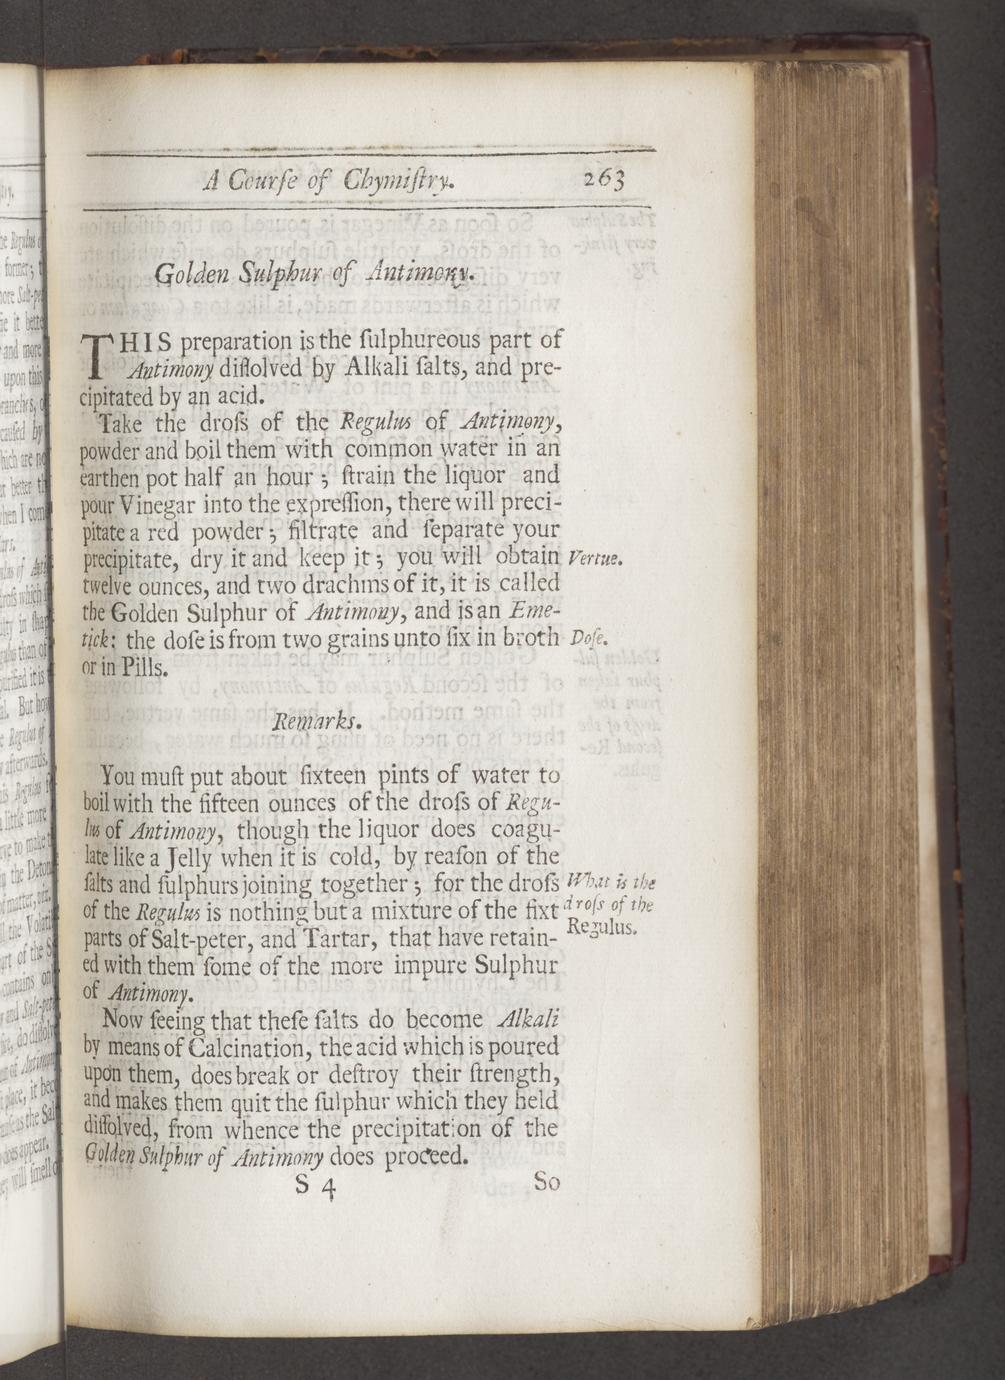 A Courſe of Chymiſtry. 263
Golden Sulphur of Antimony.
THIS preparation is the ſulphureous part of
Antimony diſſolved by Alkali ſalts, and pre-
cipitated by an acid.
Take the droſs of the Regulus of Antimony,
powder and boil them with common water in an
earthen pot half an hour; ſtrain the liquor and
pour Vinegar into the expreſſion, there will preci-
pitate a red powder; filtrate and ſeparate your
precipitate, dry it and keep it; you will obtain
Vertue.
twelve ounces, and two drachms of it, it is called
the Golden Sulphur of Antimony, and is an Eme-
tick: the doſe is from two grains unto ſix in broth
Doſe.
or in Pills.
Remarks.
You muſt put about ſixteen pints of water to
boil with the fifteen ounces of the droſs of Regu-
lus of Antimony, though the liquor does coagu-
late like a Jelly when it is cold, by reaſon of the
ſalts and ſulphurs joining together; for the droſs
of the Regulus is nothing but a mixture of the fixt
parts of Salt-peter, and Tartar, that have retain-
What is the
droſs of the
Regulus.
ed with them ſome of the more impure Sulphur
of Antimony.
Now ſeeing that theſe ſalts do become Alkali
by means of Calcination, the acid which is poured
upon them, does break or deſtroy their ſtrength,
and makes them quit the ſulphur which they held
diſſolved, from whence the precipitation of the
Golden Sulphur of Antimony does proceed.
S 4 So